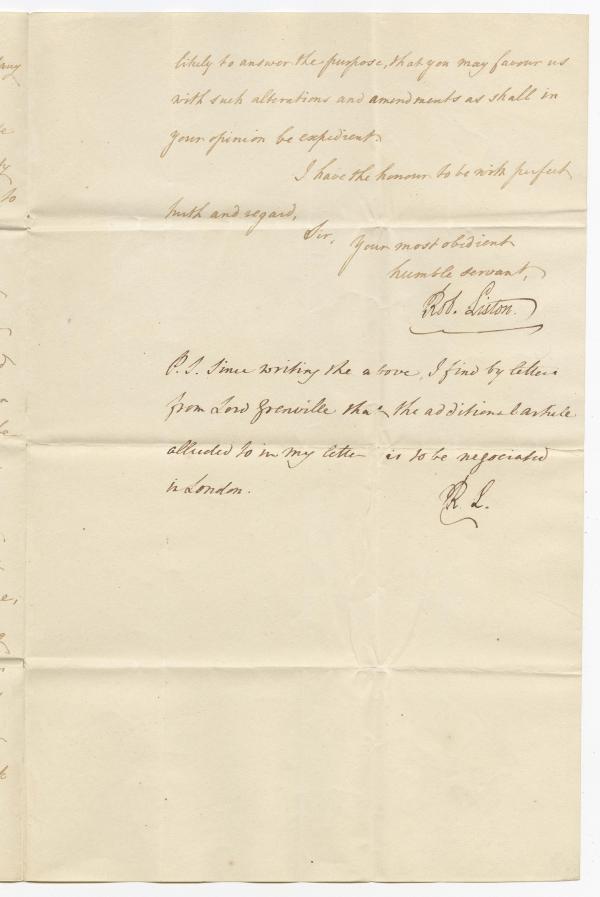 likely to answer the purpose, that you may favour us
with such alterations and amendments as shall in
your opinion be expedient.
I have the honour to be with perfect
truth and regard,
Sir,
Your most obedient
humble servant,
Rob. Liston.
P.S. Since writing the above, I find by letters
from Lord Grenville that the additional article
alluded to in my letter is to be negociated
in London.
R. L.